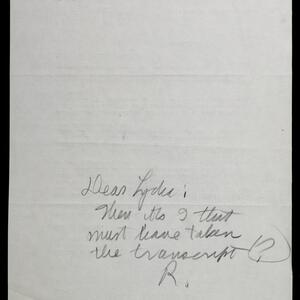 Dear Lydia:
Then it's I that
must have taken
the transcript (?)
R.